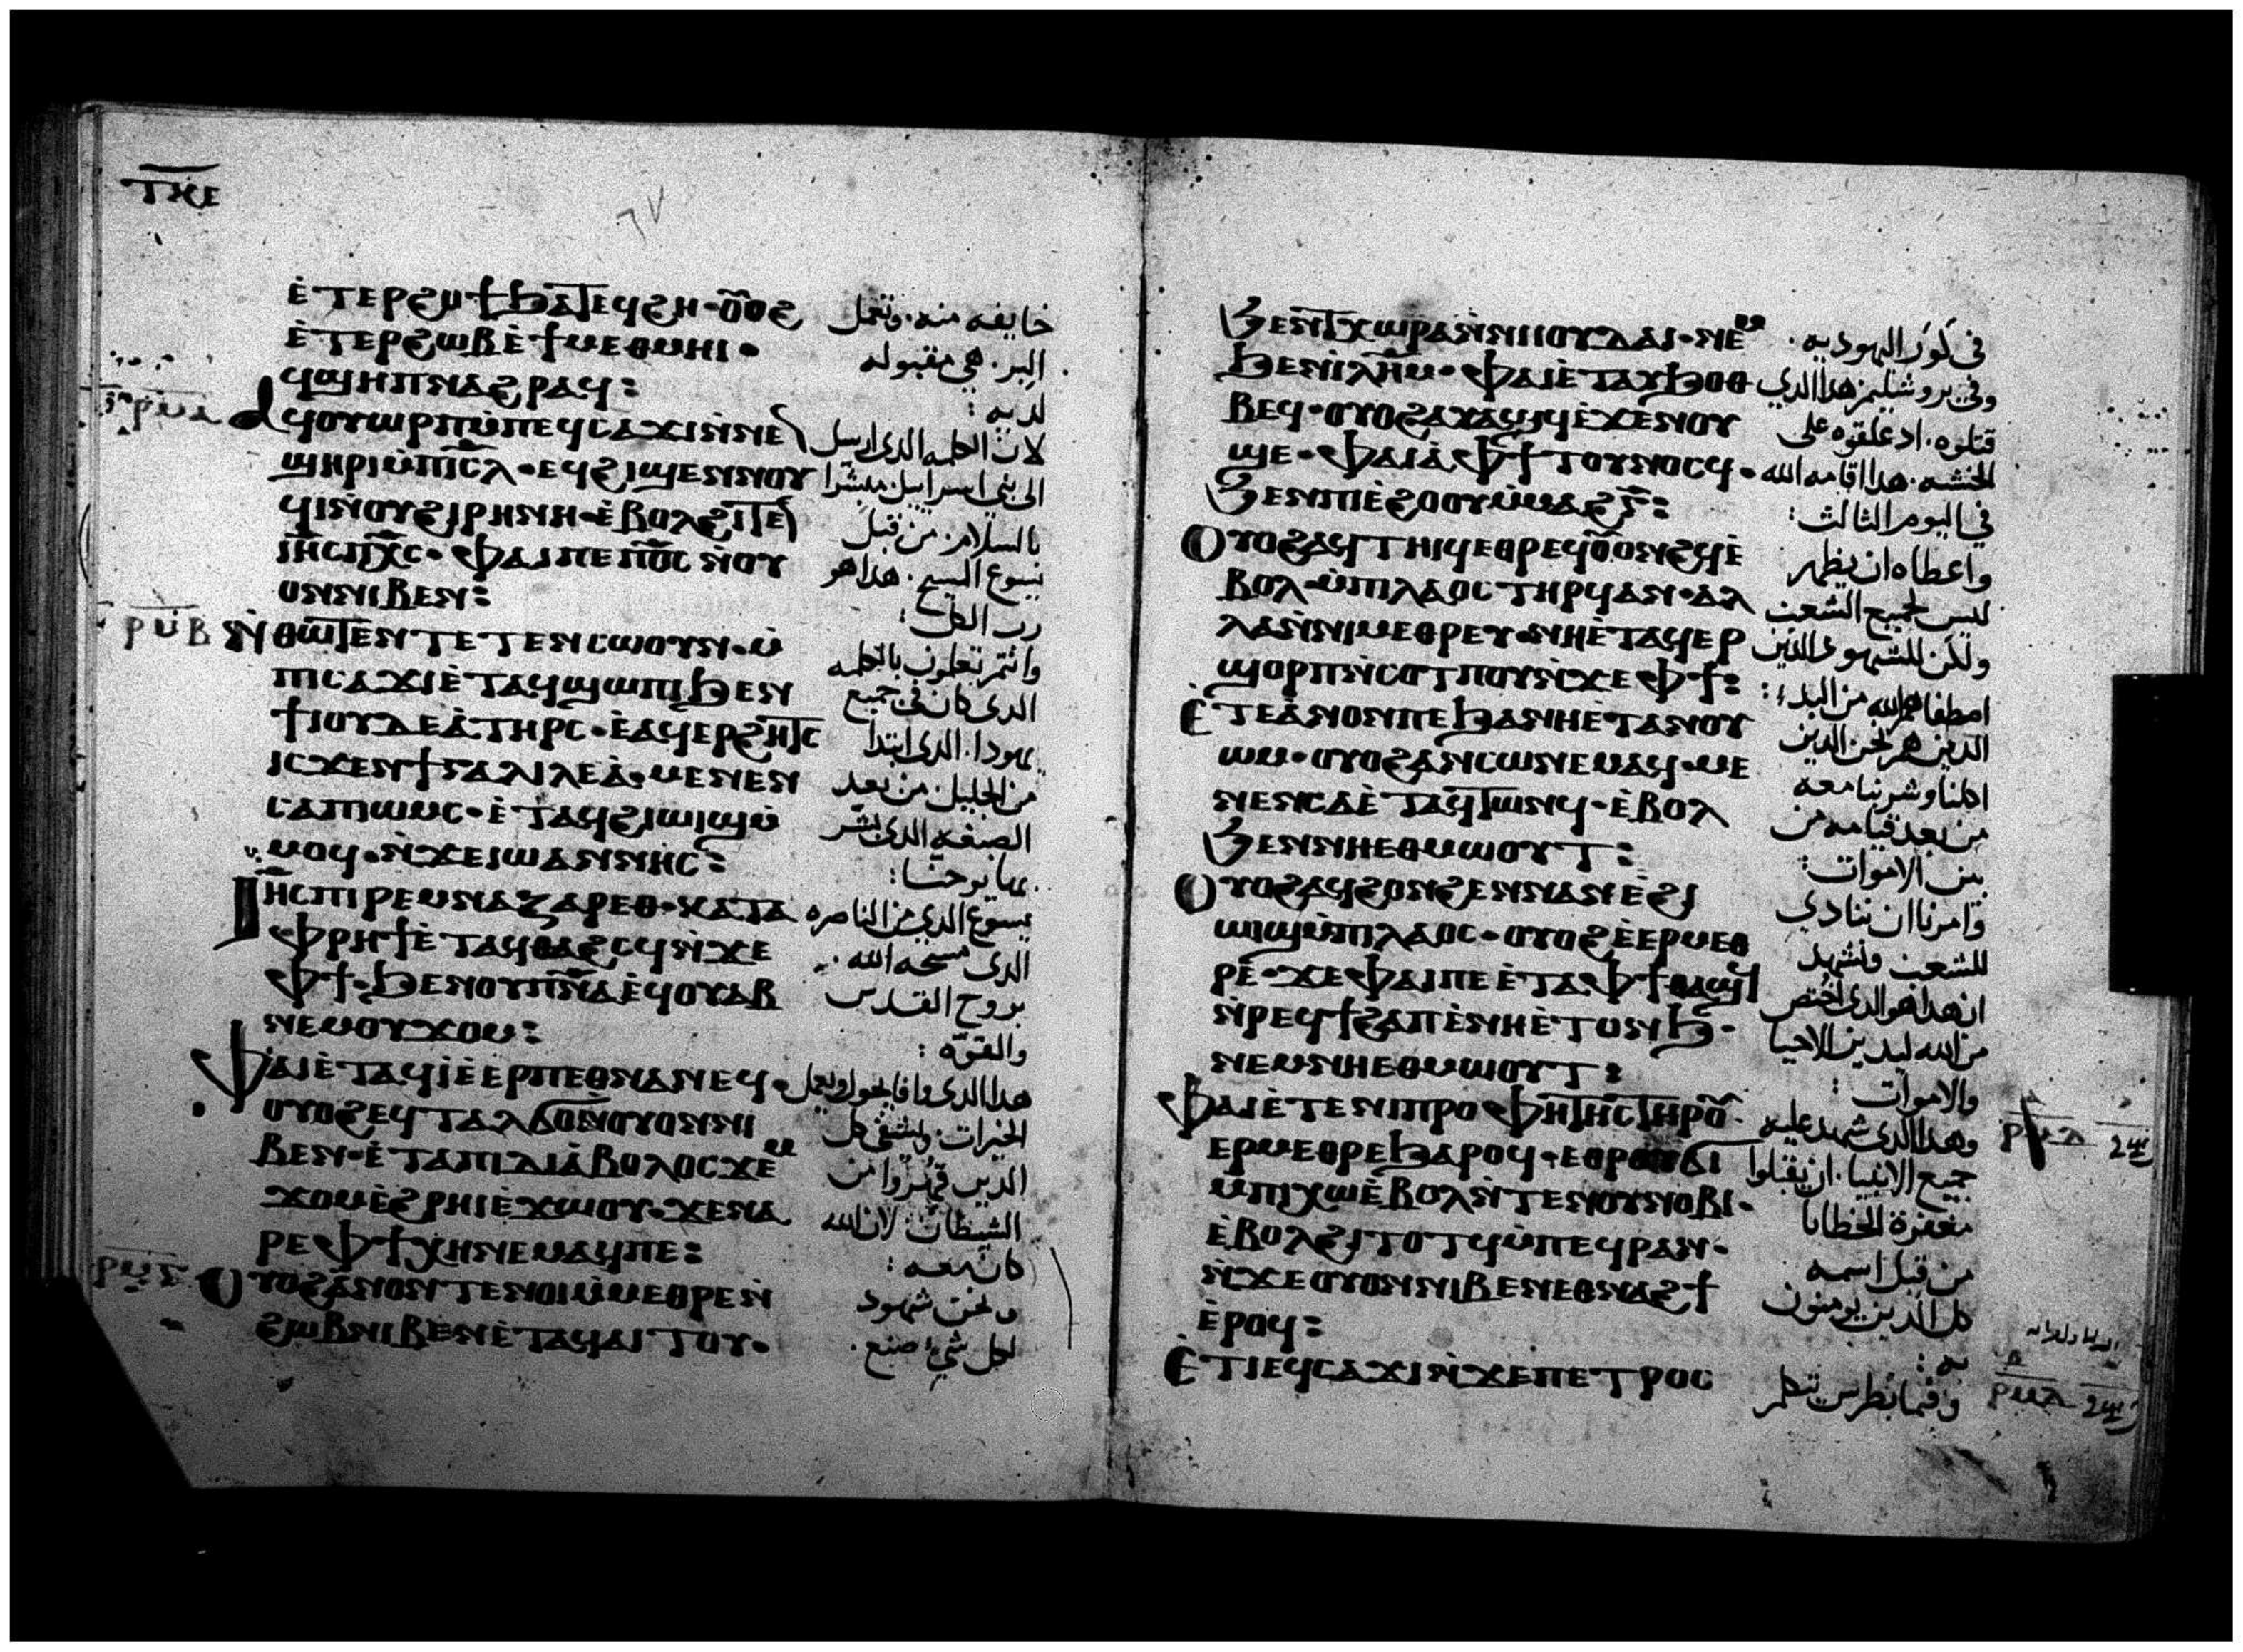 ⲧⲕⲉ
ⲉ̀ⲧⲉⲣϩⲟϯ ϧⲁⲧⲉϥϩⲏ · ⲟⲩⲟϩ خايفه منه. وتعمل
ⲉ̀ⲧⲉⲣϩⲱⲃ ⲉ̀ϯⲙⲉⲑⲙⲏⲓ · البر. هي مقبوله
ϥϣⲏⲡ ⲛⲁϩⲣⲁϥ : لديه :
ⲁϥⲟⲩⲱⲣⲡ ⲙ̀ⲡⲉϥⲥⲁϫⲓ ⲛ̀ⲛⲉⲛ لان الكلمه الذي ارسل
ϣⲏⲣⲓ ⲙ̀ⲡⲓⲥ̅ⲗ · ⲉϥϩⲓϣⲉⲛⲛⲟⲩ الي بني اسراييل مبشرا
ϥⲓ ⲛ̀ⲟⲩϩⲓⲣⲏⲛⲏ · ⲉ̀ⲃⲟⲗ ϩⲓⲧⲉⲛ بالسلام. من قبل
ⲓⲏ̅ⲥ ⲡⲭ̅ⲥ · ⲫⲁⲓ ⲡⲉ ⲡϭ̅ⲟⲓⲥ ⲛ̀ⲟⲩ يسوع المسيح. هذا هو
ⲟⲛ ⲛⲓⲃⲉⲛ : رب الكل :
ⲣⲙⲃ ⲛ̀ⲑⲱⲧⲉⲛ ⲧⲉⲧⲉⲛⲥⲱⲟⲩⲛ · ⲙ̀ وانتم تعلمون بالكلمه
ⲡⲓⲥⲁϫⲓ ⲉ̀ⲧⲁϥϣⲱⲡⲓ ϧⲉⲛ الذي كان في جميع
ϯⲓⲟⲩⲇⲉⲁ̀ ⲧⲏⲣⲥ · ⲉ̀ⲁϥⲉⲣϩⲏⲧⲥ يهودا. الذي ابتدا
ⲓⲥϫⲉⲛ ϯⲅⲁⲗⲓⲗⲉⲁ̀ · ⲙⲉⲛⲉⲛ من الجليل من بعد
ⲥⲁ ⲡⲓⲱⲙⲥ · ⲉ̀ⲧⲁϥϩⲓⲱⲓϣ ⲙ̀ الصبغه الذي بشر
ⲙⲟϥ · ⲛ̀ϫⲉ ⲓⲱⲁⲛⲛⲏⲥ : بها يوحنا :
ⲓⲏ̅ⲥ ⲡⲓⲣⲉⲙⲛⲁⲍⲁⲣⲉⲑ · ⲕⲁⲧⲁ يسوع الذي من الناصره
ⲫⲣⲏϯ ⲉ̀ⲧⲁϥⲑⲁϩⲥϥ ⲛ̀ϫⲉ الذي مسحه الله .
ⲫϯ · ϧⲉⲛ ⲟⲩⲡⲛ̅ⲁ ⲉϥⲟⲩⲁⲃ بروح القدس
ⲛⲉⲙ ⲟⲩϫⲟⲙ : والقوه :
ⲫⲁⲓ ⲉ̀ⲧⲁϥⲓ̀ ⲉ̀ⲉⲣⲡⲉⲑⲛⲁⲛⲉϥ · هذا الذي وافا يجول ويعمل
ⲟⲩⲟϩ ⲉϥⲧⲁⲗϭⲟ ⲛ̀ⲟⲩⲟⲛ ⲛⲓ الخيرات. ويشفي كل
ⲃⲉⲛ · ⲉ̀ⲧⲁ ⲡⲓⲇⲓⲁ̀ⲃⲟⲗⲟⲥ ϫⲉⲙ الذين قهروا من
ϫⲟⲙ ⲉ̀ϩⲣⲏⲓ ⲉ̀ϫⲱⲟⲩ · ϫⲉ ⲛⲁ الشيطان. لان الله
ⲣⲉ ⲫϯ ⲭⲏ ⲛⲉⲙⲁϥ ⲡⲉ : كان معه :
ⲟⲩⲟϩ ⲁ̀ⲛⲟⲛ ⲧⲉⲛⲟⲓ ⲙ̀ⲙⲉⲑⲣⲉ ⲛ̀ ونحن شهود
ϩⲱⲃ ⲛⲓⲃⲉⲛ ⲉ̀ⲧⲁϥⲁⲓⲧⲟⲩ · لكل شي صنع .
ϧⲉⲛ ⲧⲭⲱⲣⲁ ⲛ̀ⲛⲓⲓⲟⲩⲇⲁⲓ · ⲛⲉⲙ في كور اليهوديه .
ϧⲉⲛ ⲓ̀ⲗⲏ̅ⲙ · ⲫⲁⲓ ⲉ̀ⲧⲁⲩϧⲟⲑ وفي يروشليم. هذا الذي
ⲃⲉϥ · ⲟⲩⲟϩ ⲁⲩⲁϣϥ ⲉ̀ϫⲉⲛ ⲟⲩ قتلوه. اذ علقوه علي
ϣⲉ · ⲫⲁⲓ ⲁ̀ ⲫϯ ⲧⲟⲩⲛⲟⲥϥ · الخشبه. هذا اقامه الله
ϧⲉⲛ ⲡⲓⲉ̀ϩⲟⲟⲩ ⲙ̀ⲙⲁϩⲅ̅ : في اليوم الثالث :
ⲟⲩⲟϩ ⲁϥⲧⲏⲓϥ ⲉⲑⲣⲉϥⲟⲩⲟⲛϩϥ ⲉ̀ واعطاه ان يظهر
ⲃⲟⲗ · ⲙ̀ⲡⲓⲗⲁⲟⲥ ⲧⲏⲣϥ ⲁⲛ · ⲁⲗ ليس لجميع الشعب
ⲗⲁ ⲛ̀ⲛⲓⲙⲉⲑⲣⲉⲩ · ⲛⲏ ⲉ̀ⲧⲁϥⲉⲣ ولكن للشهود الذين
ϣⲟⲣⲡ ⲛ̀ⲥⲟⲧⲡⲟⲩ ⲛ̀ϫⲉ ⲫϯ : اصطفاهم الله من البدء :
ⲉ̀ⲧⲉ ⲁ̀ⲛⲟⲛ ⲡⲉ ϧⲁ ⲛⲏ ⲉ̀ⲧⲁⲛⲟⲩ الذين هم نحن الذين
ⲱⲙ · ⲟⲩⲟϩ ⲁⲛⲥⲱ ⲛⲉⲙⲁϥ · ⲙⲉ اكلنا وشربنا معه
ⲛⲉⲛⲥⲁ ⲉ̀ⲧⲁϥⲧⲱⲛϥ · ⲉ̀ⲃⲟⲗ من بعد قيامه من
ϧⲉⲛ ⲛⲏⲉⲑⲙⲱⲟⲩⲧ : بين الاموات :
ⲟⲩⲟϩ ⲁϥϩⲟⲛϩⲉⲛ ⲛⲁⲛ ⲉ̀ϩⲓ وامرنا ان ننادي
ⲱⲓϣ ⲙ̀ⲡⲓⲗⲁⲟⲥ · ⲟⲩⲟϩ ⲉ̀ⲉⲣⲙⲉⲑ للشعب ونشهد
ⲣⲉ · ϫⲉ ⲫⲁⲓ ⲡⲉ ⲉ̀ⲧⲁ ⲫϯ ⲑⲁϣϥ ان هذا هو الذي اختص
ⲛ̀ⲣⲉϥϯϩⲁⲡ ⲉ̀ⲛⲏ ⲉ̀ⲧⲟⲛϧ · من الله ليدين الاحيا
ⲛⲉⲙ ⲛⲏⲉⲑⲙⲱⲟⲩⲧ : والاموات :
ⲫⲁⲓ ⲉ̀ⲧⲉ ⲛⲓⲡⲣⲟⲫⲏⲧⲏⲥ ⲧⲏⲣⲟⲩ · وهذا الذي شهد عليه
ⲉⲣⲙⲉⲑⲣⲉ ϧⲁⲣⲟϥ · ⲉⲑⲣⲟⲩϭⲓ جميع الانبيا. ان يقبلوا
ⲙ̀ⲡⲓⲭⲱ ⲉ̀ⲃⲟⲗ ⲛ̀ⲧⲉ ⲛⲟⲩⲛⲟⲃⲓ · مغفرة الخطايا
ⲉ̀ⲃⲟⲗ ϩⲓⲧⲟⲧϥ ⲙ̀ⲡⲉϥⲣⲁⲛ · من قبل اسمه
ⲛ̀ϫⲉ ⲟⲩⲟⲛ ⲛⲓⲃⲉⲛ ⲉⲑⲛⲁϩϯ كل الذين يومنون
ⲉ̀ⲣⲟϥ : به :
ⲉ̀ⲧⲓ ⲉϥⲥⲁϫⲓ ⲛ̀ϫⲉ ⲡⲉⲧⲣⲟⲥ وفيما بطرس يتكلم